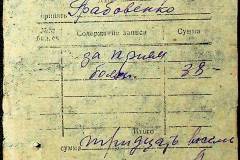 принять Фрабовенко
Содержание записи Сумма
за прием
болн. 38-
Итого
сумма тридцать восемь